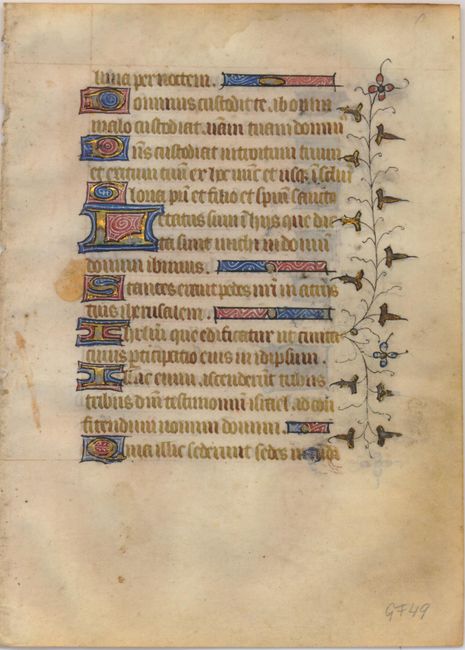 luna per noctem.
Dominus custodit te ab omni
malo custodiat aīam tuam domin̄
Dn̄s custodiat introitum tuum
et exitum tuū ex hoc nunc et usq; ī seculū
Gloria pr̄i et filio et spūi sancto
Letatus sum ī hys que dic
ta sunt michi in domū
domini ibimus.
Stantes erant pedes nr̄i in atriis
tuis iherusalem.
Iherlm̄ que edificatur ut civitas
cuius pticipatio eius in idipsum.
Illac enim ascenderūt tribus
tribus dn̄i testimoniū israel ad con
fitendum nomini domini.
Quia illic sederunt sedes in
GF49